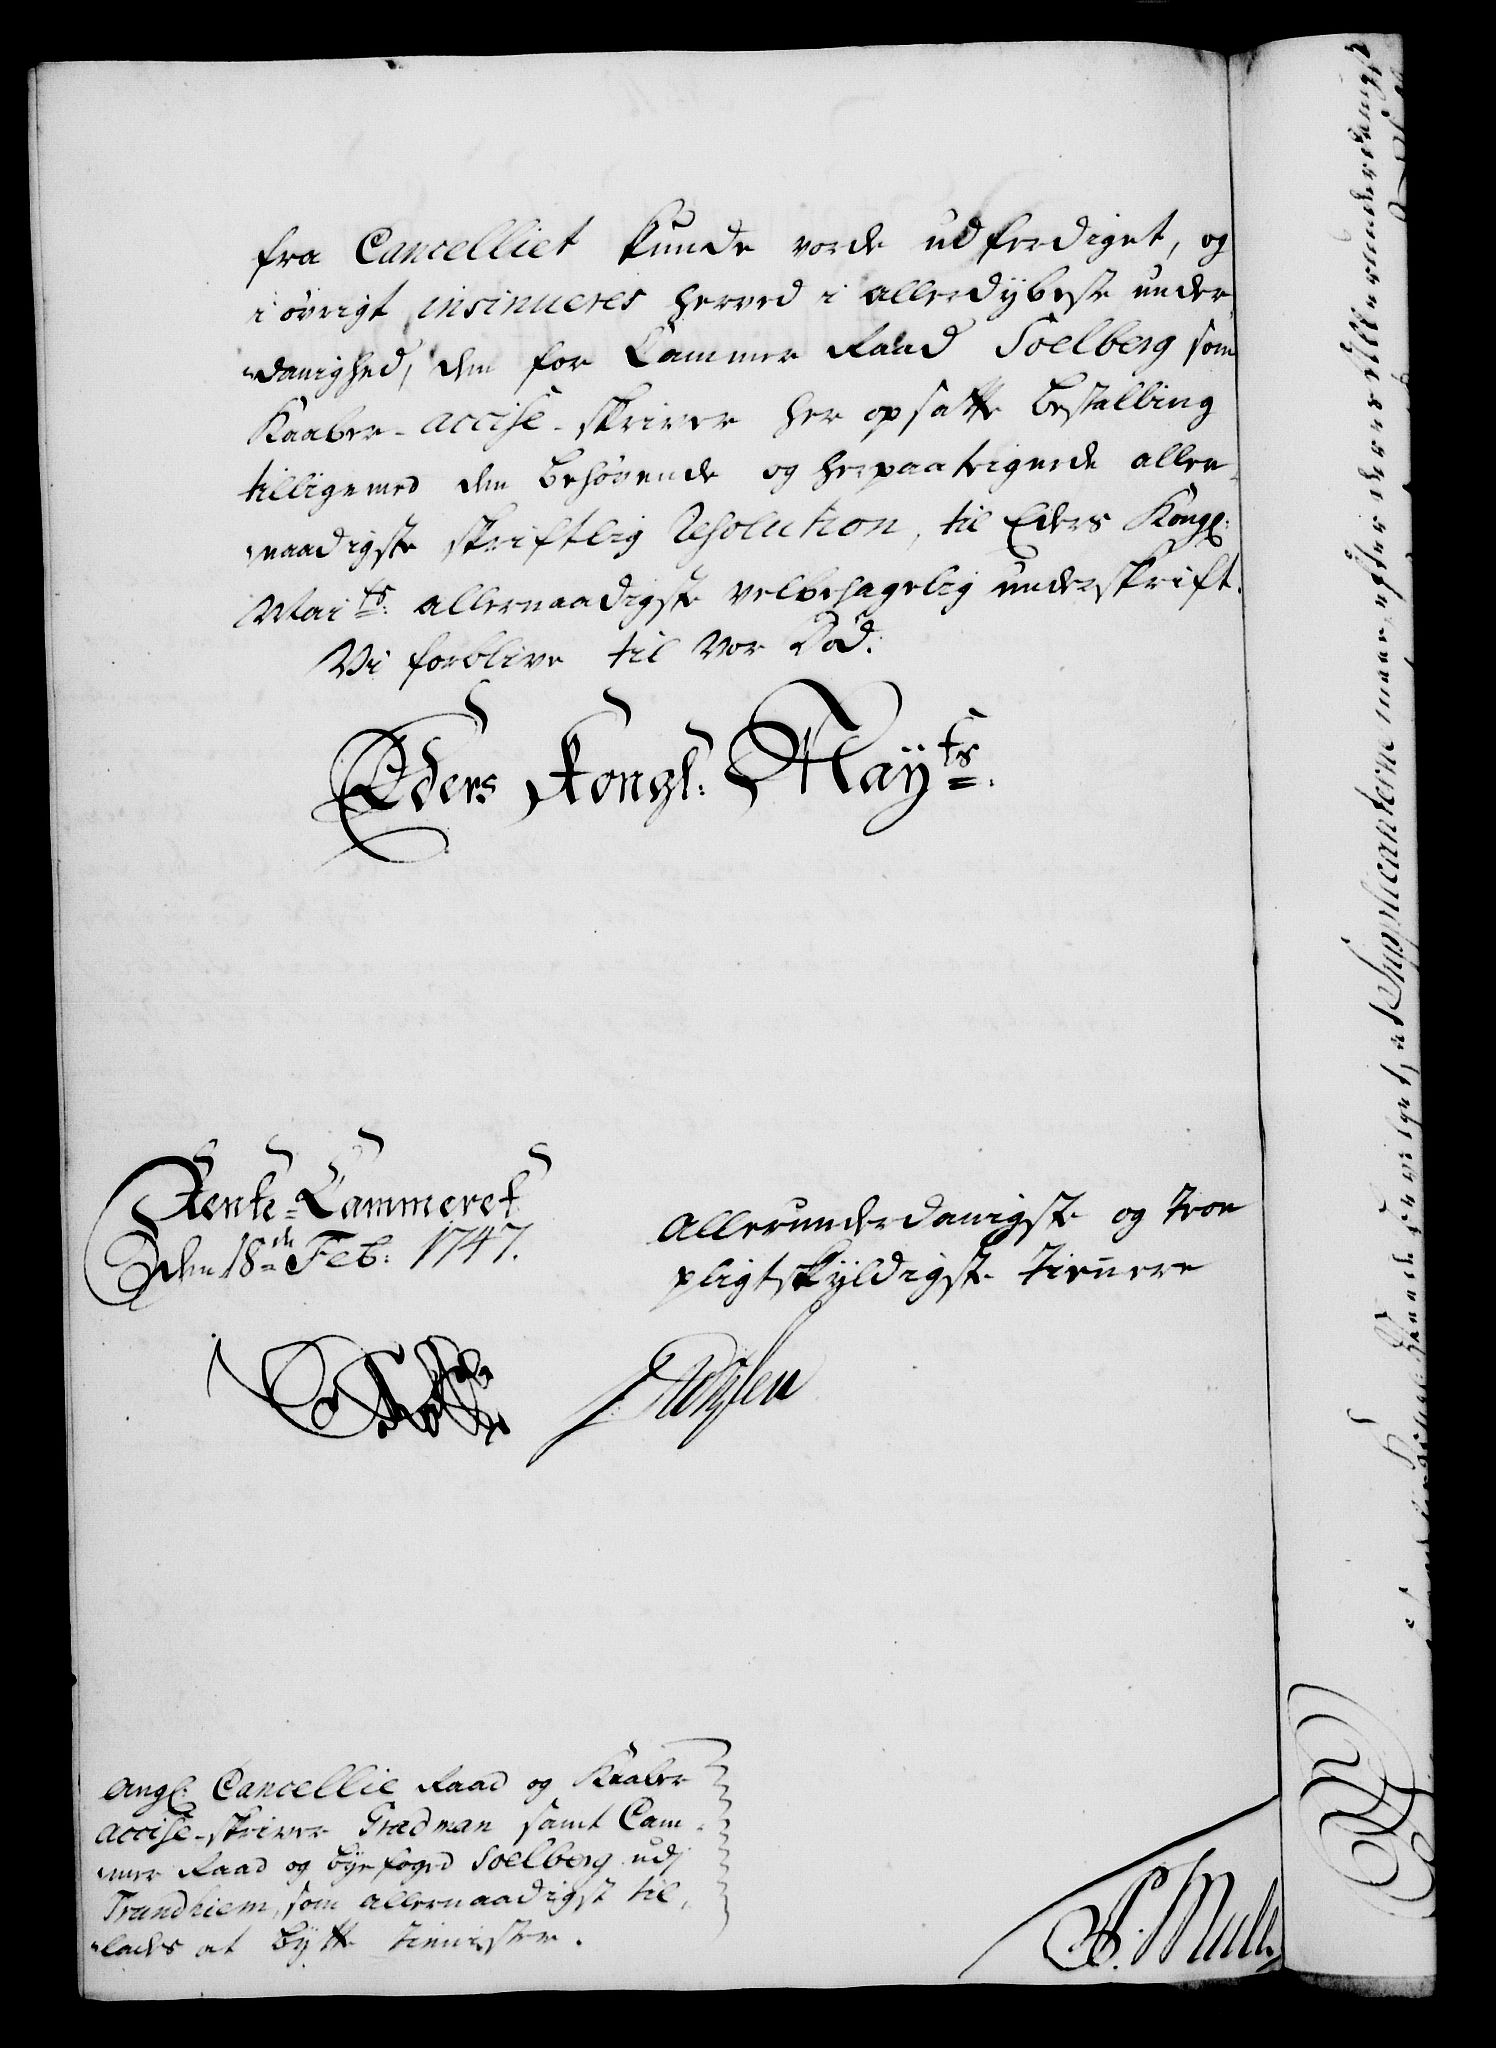 fra Cancelliet kunde vorde udferdiget, og
i øvrigt insinueres herved i allerdybeste under
danighed, den for Cammer Raad Soelberg som
Kaaber-accise-skriver her opsatte Bestalling
tilligemed den behøvende og herpaa teignede aller-
naadigste skriftlig Resolution, til Eders Kongl:
Mai ts: allernaadigste velbehagelig underskrift.
Vi forblive til vor Død.
Eders Kongl: May ts:
Rente-Cammeret
Den 18 de Feb: 1747.
Allerunderdanigste og troe
pligtskyldigste tienere
Angl: Cancellie Raad og Kaaber
accise-skriver Grædman samt Cam-
mer Raad og byefoged Soelberg udj
Trundhiem, som allernaadigst til-
lades at bytte tienister.